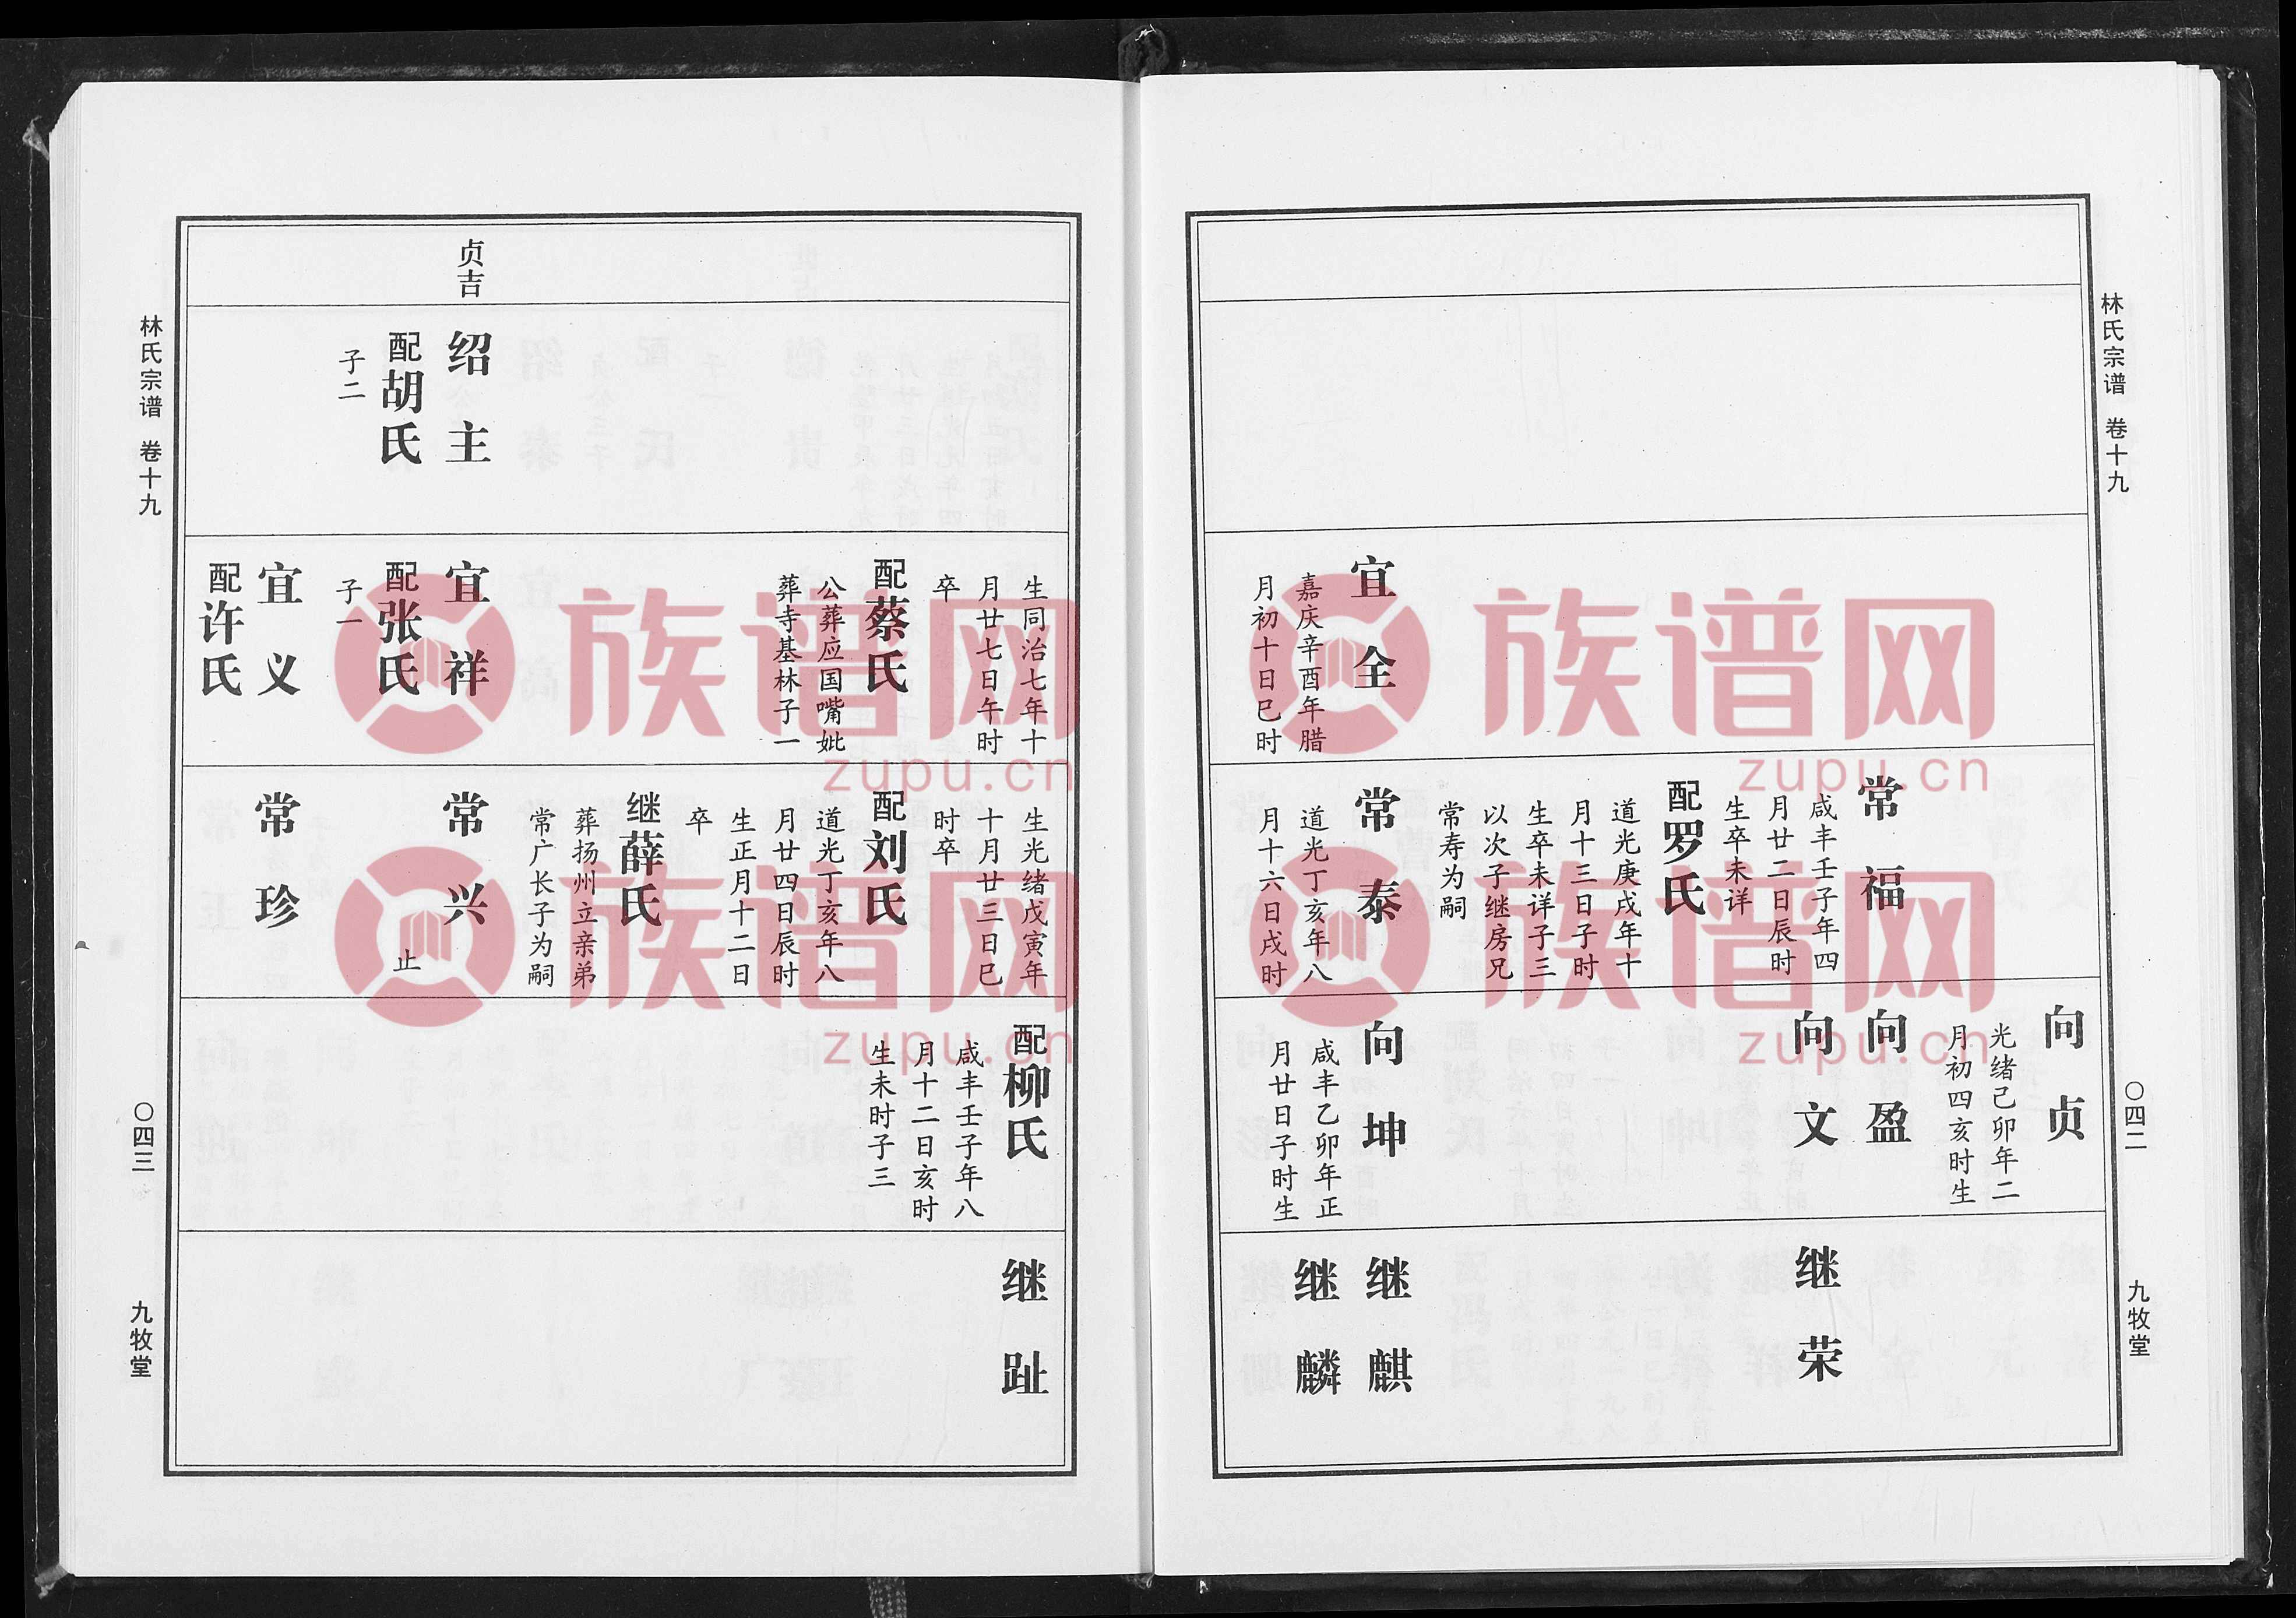 林氏宗谱 卷十九
〇四二
九牧堂
宜全
嘉庆辛酉年腊
月初十日巳时
常福
咸丰壬子年四
月廿二日辰时
生卒未详
配罗氏
道光庚戌年十
月十三日子时
生卒未详子三
以次子继房兄
常寿为嗣
常泰
道光丁亥年八
月十六日戌时
向贞
光绪己卯年二
月初四亥时生
向盈
向文
向坤
咸丰乙卯年正
月廿日子时生
继荣
继麒
继麟
贞吉
绍主
配胡氏
子二
生同治七年十
月廿七日午时
卒
配蔡氏
公葬应国嘴妣
葬寺基林子一
宜祥
配张氏
子一
宜义
配许氏
生光绪戊寅年
十月廿三日巳
时卒
配刘氏
道光丁亥年八
月廿四日辰时
生正月十二日
卒
继薛氏
葬扬州立亲弟
常广长子为嗣
常兴
止
常珍
配柳氏
咸丰壬子年八
月十二日亥时
生未时子三
继趾
林氏宗谱 卷十九
〇四三
九牧堂
族谱网
zupu.cn
族谱网
zupu.cn
族谱网
zupu.cn
族谱网
zupu.cn